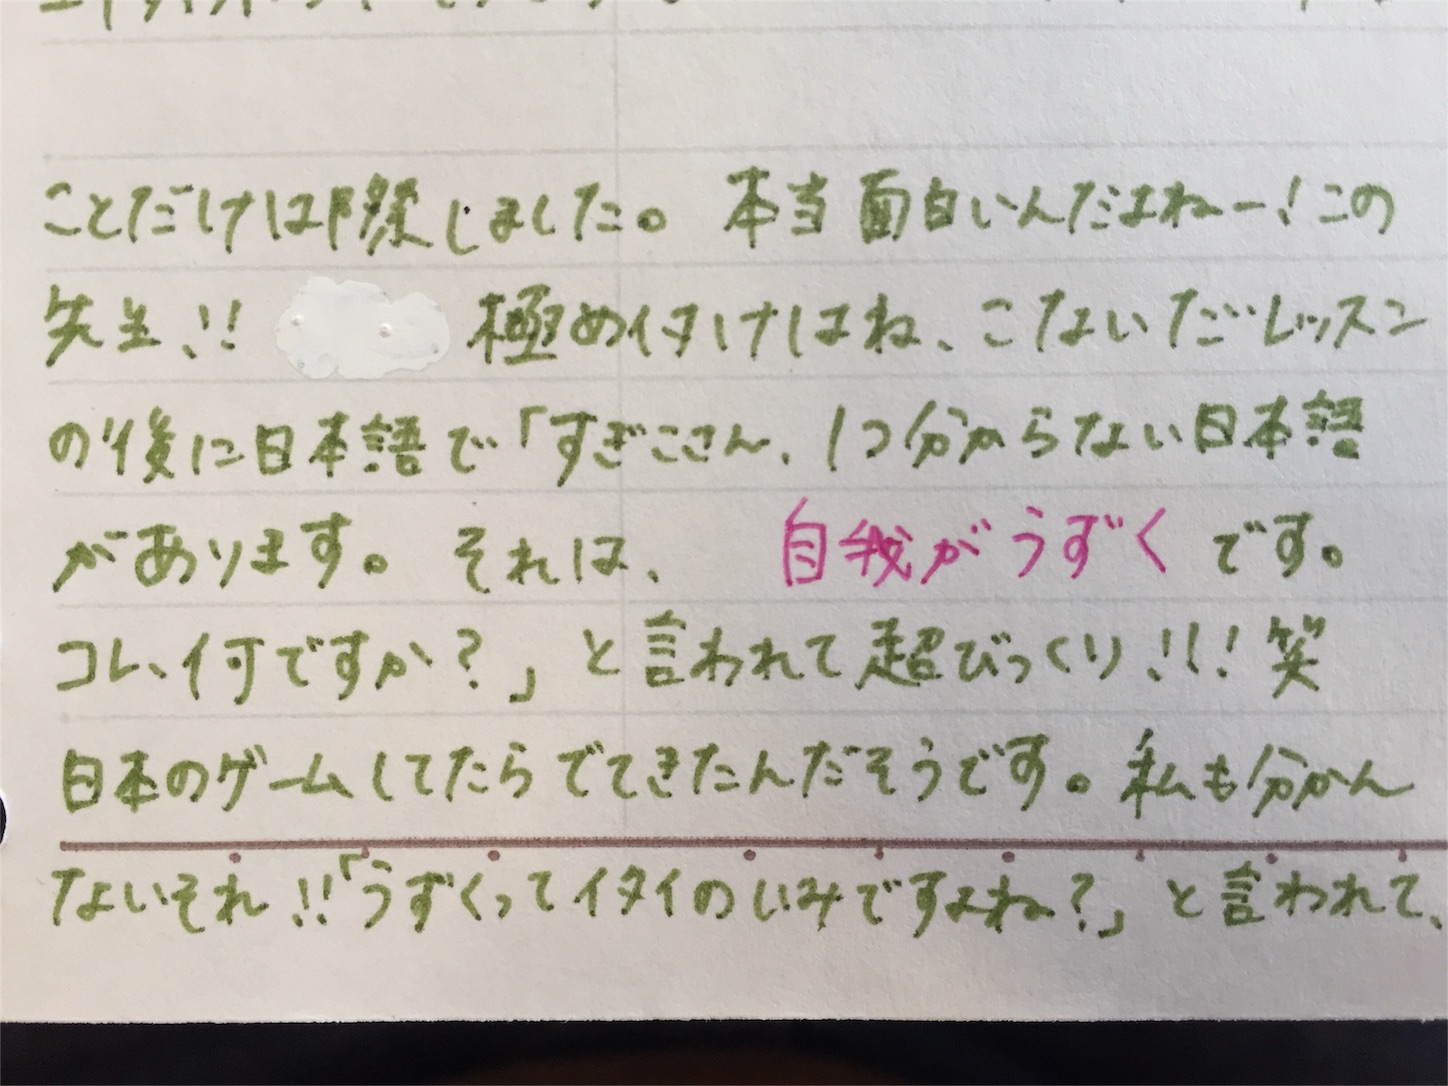 ことだけは際しました。 本当面白いんだよねー！この
先生、!! 極め付けはね、こないだレッスン
の後に日本語で「すぎこさん、1つ分からない日本語
があります。それは、 自我がうずく です。
コレ、何ですか？」と言われて超びっくり!!! 笑
日本のゲームしてたらでてきたんだそうです。私も分かん
ないそれ!!「うずくってイタイのいみですよね？」と言われて、